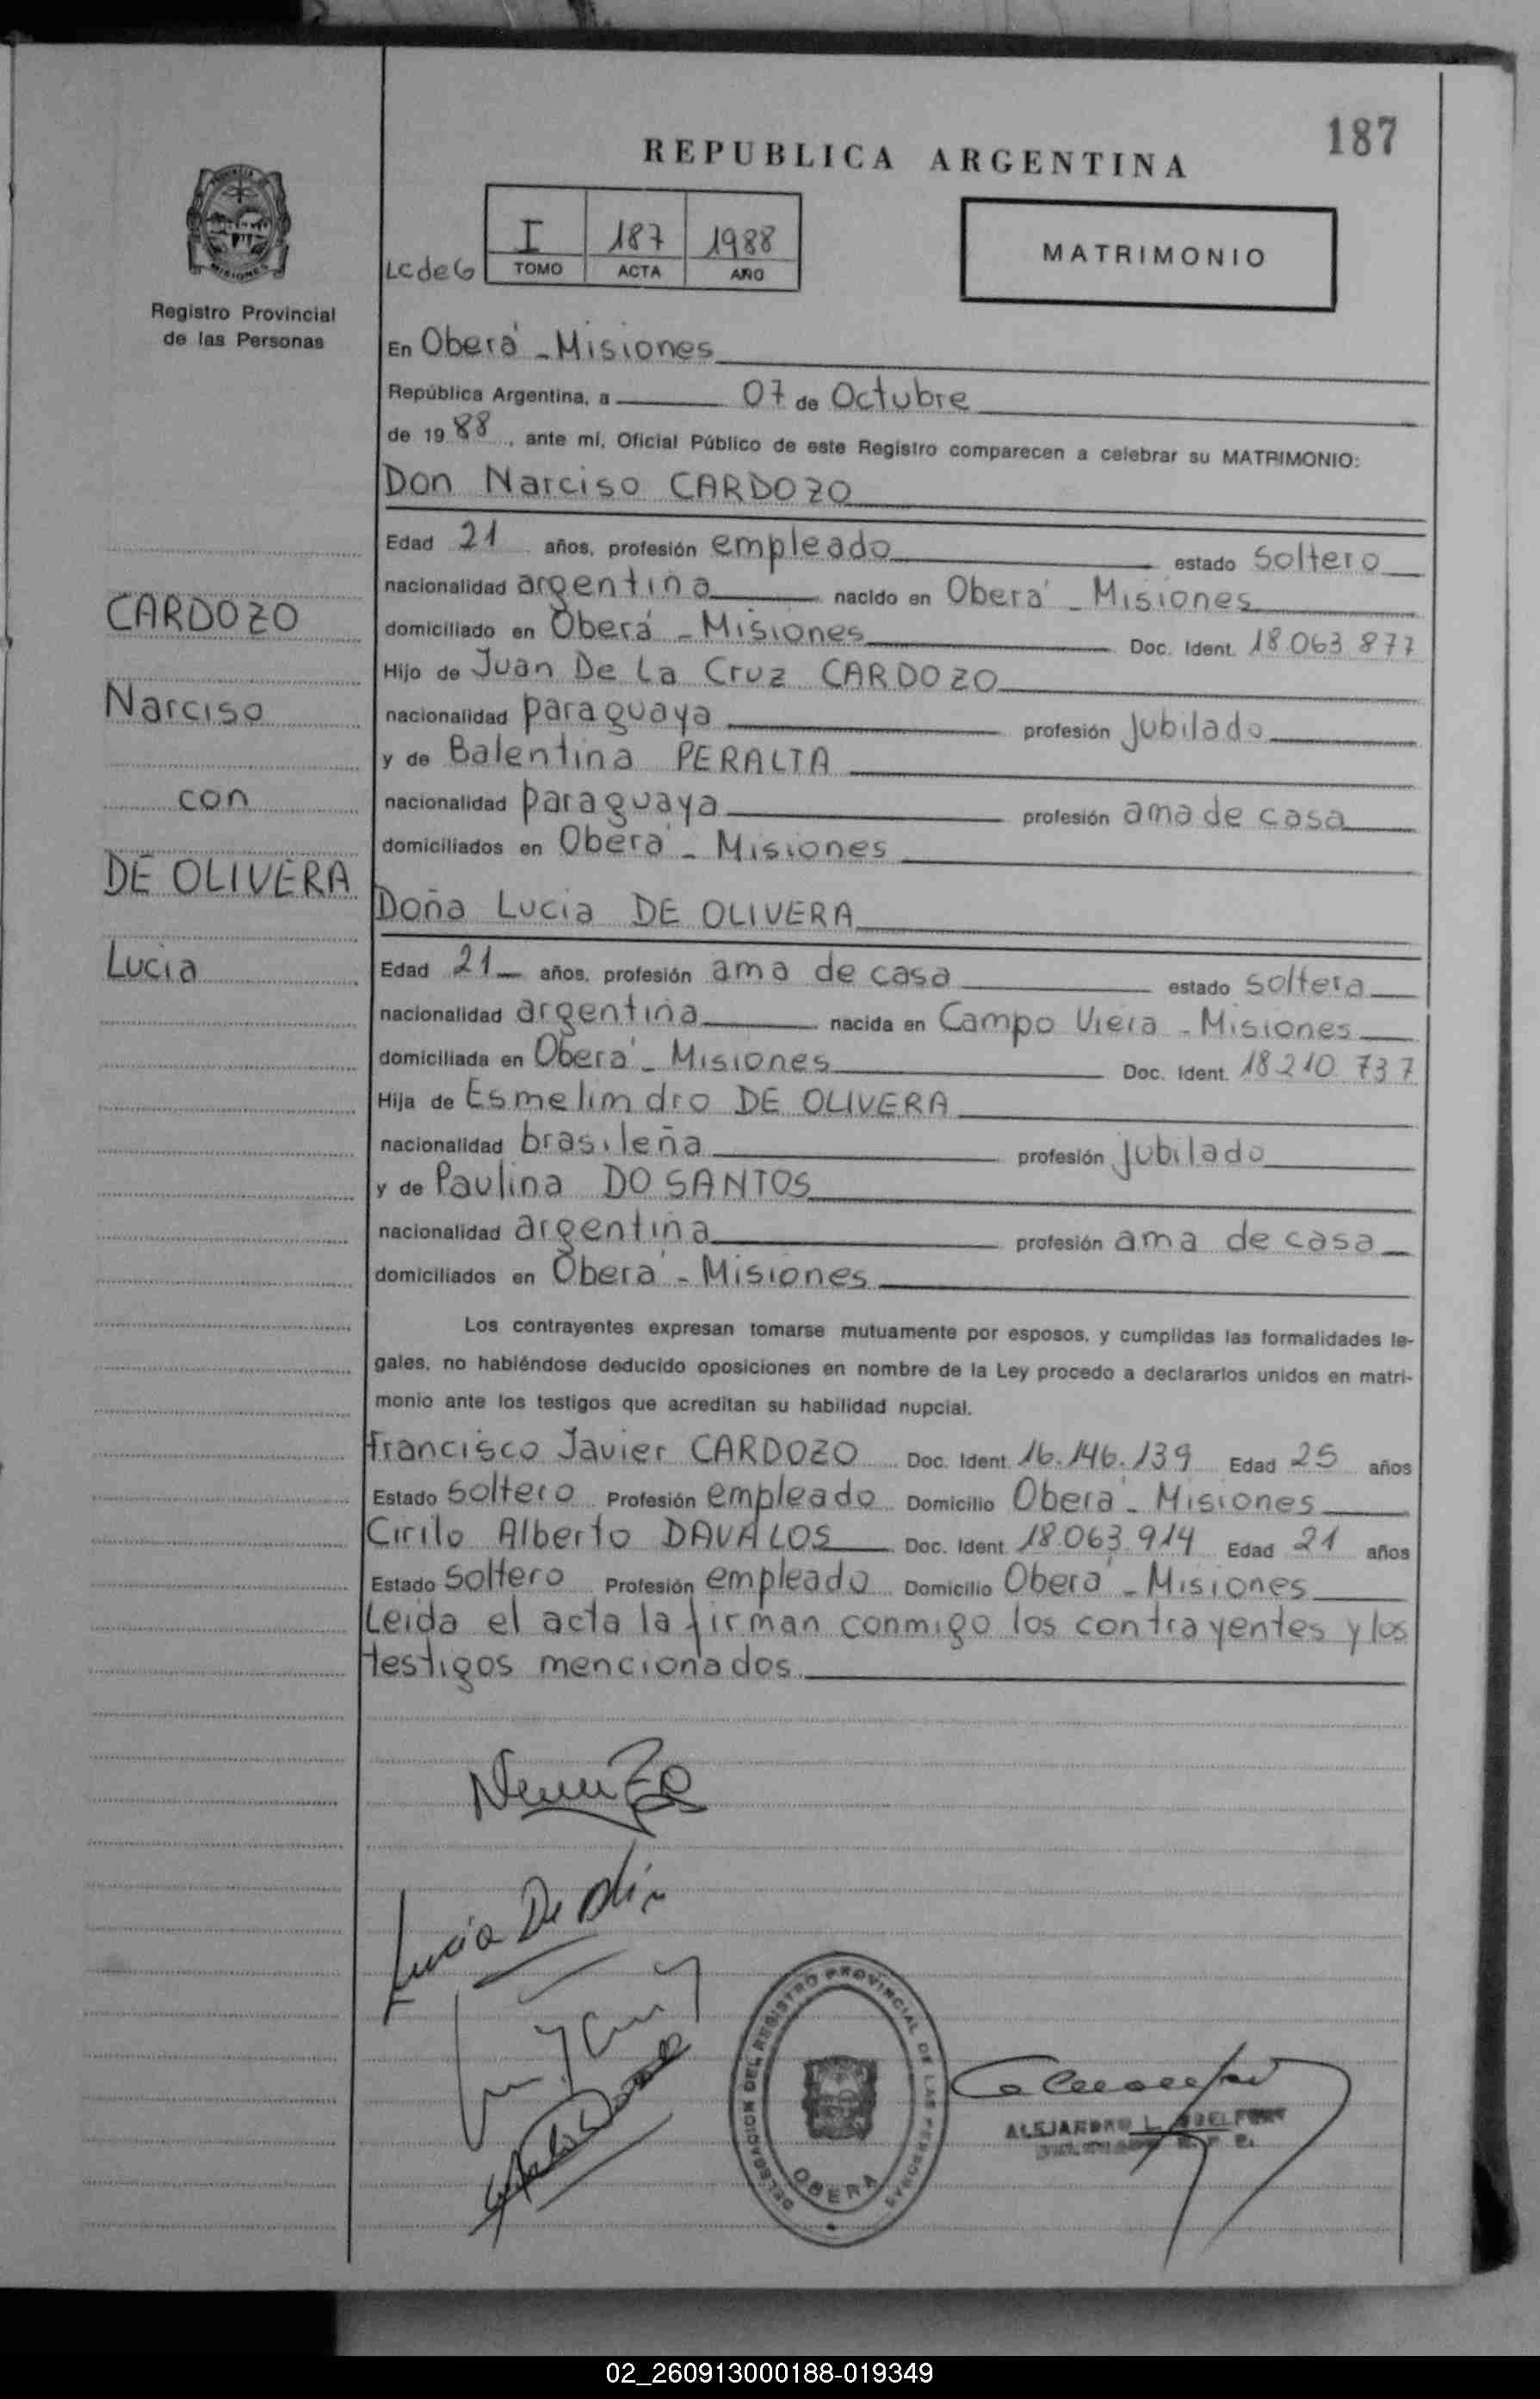 187
REPUBLICA ARGENTINA
I 187 1988
LC de G TOMO ACTA AÑO
MATRIMONIO
MISIONES
Registro Provincial
de las Personas
En Oberá - Misiones
República Argentina, a 07 de Octubre
de 1988, ante mí, Oficial Público de este Registro comparecen a celebrar su MATRIMONIO:
Don Narciso CARDOZO
Edad 21 años, profesión empleado estado soltero
nacionalidad argentina nacido en Oberá - Misiones
domiciliado en Oberá - Misiones Doc. Ident. 18.063.877
Hijo de Juan De La Cruz CARDOZO
nacionalidad paraguaya profesión jubilado
y de Balentina PERALTA
nacionalidad paraguaya profesión ama de casa
domiciliados en Oberá - Misiones
Doña Lucia DE OLIVERA
Edad 21 años, profesión ama de casa estado soltera
nacionalidad argentina nacida en Campo Viera - Misiones
domiciliada en Oberá - Misiones Doc. Ident. 18.210.737
Hija de Esmelimdro DE OLIVERA
nacionalidad brasileña profesión jubilado
y de Paulina DO SANTOS
nacionalidad argentina profesión ama de casa
domiciliados en Oberá - Misiones
CARDOZO
Narciso
con
DE OLIVERA
Lucia
Los contrayentes expresan tomarse mutuamente por esposos, y cumplidas las formalidades le-
gales, no habiéndose deducido oposiciones en nombre de la Ley procedo a declararlos unidos en matri-
monio ante los testigos que acreditan su habilidad nupcial.
Francisco Javier CARDOZO Doc. Ident. 16.146.139 Edad 25 años
Estado soltero Profesión empleado Domicilio Oberá - Misiones
Cirilo Alberto DAVALOS Doc. Ident 18.063.914 Edad 21 años
Estado soltero Profesión empleado Domicilio Oberá - Misiones
Leida el acta la firman conmigo los contrayentes y los
testigos mencionados.
Lucia De
DELEGACION DEL REGISTRO PROVINCIAL DE LAS PERSONAS
OBERA
ALEJANDRO L.
02_260913000188-019349